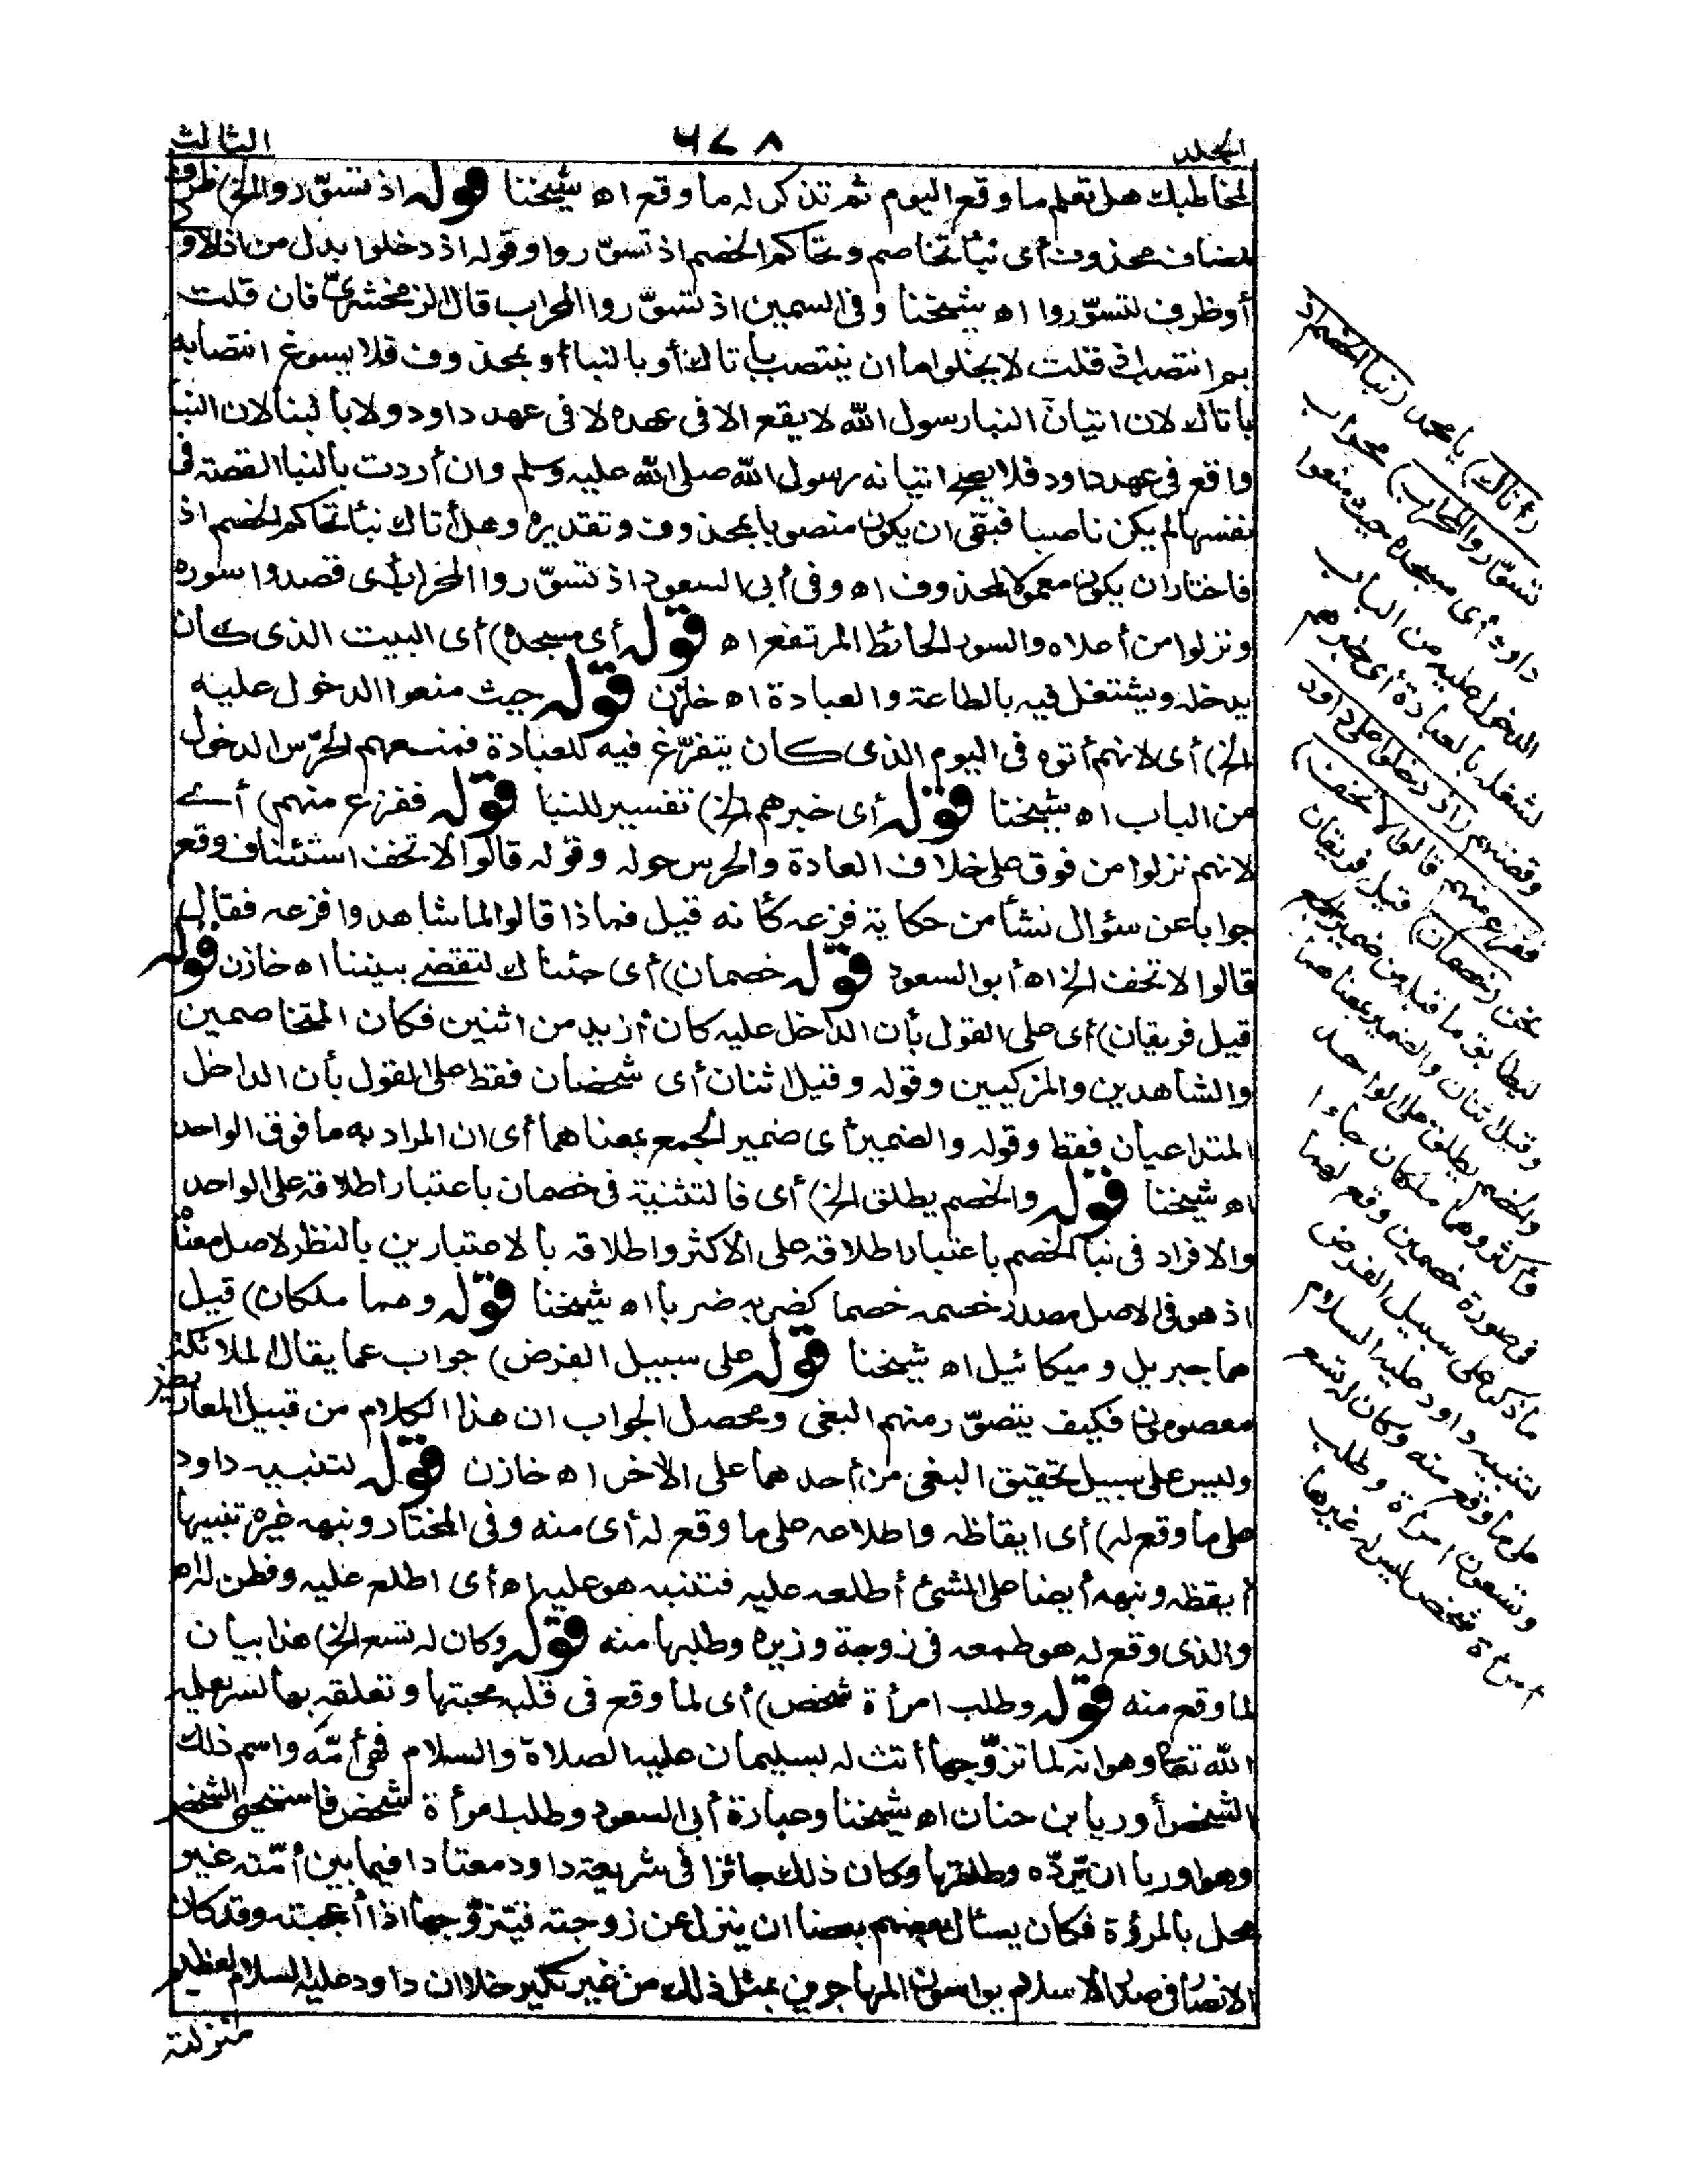 المجلد ٦٧٨ الثالث
لمخاطبك هل تعلم ما وقع اليوم ثم تذكر له ما وقع اه شيخنا قوله اذ تسوّروا الخ) ظرف
لمضاف محذوف أى نبأ تخاصم وتحاكم الخصم اذ تسوّروا وقوله اذ دخلوا بدل من اذ الاولى
أو ظرف لتسوّروا اه شيخنا وفى السمين اذ تسوّروا المحراب قال الزمخشرىّ فان قلت
بم انتصب اذ قلت لا يخلو اما ان ينتصب بأتاك أو بالنبأ أو بمحذوف فلا يسوغ انتصابه
بأتاك لان اتيان النبا رسول الله لا يقع الا فى عهده لا فى عهد داود ولا بالنبا لان النبا
واقع فى عهد داود فلا يصح اتيانه رسول الله صلى الله عليه وسلم وان أردت بالنبا القصة فى
نفسها لم يكن ناصبا فبقى ان يكون منصوبا بمحذوف وتقديره وهل أتاك نبأ تحاكم الخصم اذ
فاختار ان يكون معمولا لمحذوف اه وفى أبى السعود اذ تسوّروا المحراب أى قصدوا سوره
ونزلوا من أعلاه والسور الحائط المرتفع اه قوله أى مسجده) أى البيت الذى كان
يدخله ويشتغل فيه بالطاعة والعبادة اه خازن قوله حيث منعوا الدخول عليه
الخ) أى لانهم أتوه فى اليوم الذى كان يتفرّغ فيه للعبادة فمنعهم الحرس الدخول
من الباب اه شيخنا قوله أى خبرهم الخ) تفسير للنبا قوله ففزع منهم) أى
لانهم نزلوا من فوق على خلاف العادة والحرس حوله وقوله قالوا لا تخف استئناف وقع
جوابا عن سؤال نشأ من حكاية فزعه كأنه قيل فماذا قالوا لما شاهدوا فزعه فقال
قالوا لا تخف الخ اه أبو السعود قوله خصمان) أى جئناك لتقضى بيننا اه خازن قوله
قيل فريقان) أى على القول بأن الداخل عليه كان أزيد من اثنين فكان المتخاصمين
والشاهدين والمزكيين وقوله وقيل اثنان أى شخصان فقط على القول بأن الداخل
المتداعيان فقط وقوله والضمير أى ضمير الجمع بمعناهما أى ان المراد به ما فوق الواحد
اه شيخنا قوله والخصم يطلق الخ) أى فالتثنية فى خصمان باعتبار اطلاقه على الواحد
والافراد فى نبا الخصم باعتبار اطلاقه على الاكثر واطلاقه بالاعتبارين بالنظر لاصل معناه
اذ هو فى الاصل مصدر خصمه خصما كضربه ضربا اه شيخنا قوله وهما ملكان) قيل
هما جبريل وميكائيل اه شيخنا قوله على سبيل الفرض) جواب عما يقال الملائكة
معصومون فكيف يتصوّر منهم البغى ومحصل الجواب ان هذا الكلام من قبيل المعاريض
وليس على سبيل تحقيق البغى من أحدهما على الآخر اه خازن قوله لتنبيه داود
على ما وقع له) أى ايقاظه واطلاعه على ما وقع له أى منه وفى المختار ونبهه غيره تنبيها
أيقظه ونبهه أيضا على الشئ أطلعه عليه فتنبه هو عليه اه أى اطلع عليه وفطن له اه
والذى وقع له هو طمعه فى زوجة وزيره وطلبها منه قوله وكان له تسع الخ) هذا بيان
لما وقع منه قوله وطلب امرأة شخص) أى لما وقع فى قلبه محبتها وتعلقه بها لسر يعلمه
الله تعالى وهو انه لما تزوّجها أتت له بسليمان عليه الصلاة والسلام فهى أمّه واسم ذلك
الشخص أوريا بن حنان اه شيخنا وعبارة أبى السعود وطلب امرأة شخص فاستحيى الشخص
وهو اوريا ان يردّه وطلقها وكان ذلك جائزا فى شريعة داود معتادا فيما بين أمّته غير
مخل بالمروءة فكان يسأل بعضهم بعضا ان ينزل عن زوجته فيتزوّجها اذا أعجبته وقد كان
الانصار فى صدر الاسلام يواسون المهاجرين بمثل ذلك من غير نكير خلا ان داود عليه السلام لعظيم
منزلته
(أتاك) يا محمد (نبأ الخصم اذ
تسوّروا المحراب) محراب
داود أى مسجده حيث منعوا
الدخول عليه من الباب
لشغله بالعبادة أى خبرهم
وقصتهم (اذ دخلوا على داود
ففزع منهم قالوا لا تخف)
نحن (خصمان) قيل فريقان
ليطابق ما قبله من ضمير الجمع
وقيل اثنان والضمير بمعناهما
والخصم يطلق على الواحد
وأكثر وهما ملكان جاءا
فى صورة خصمين وقع لهما
ما ذكر على سبيل الفرض
لتنبيه داود عليه السلام
على ما وقع منه وكان له تسع
وتسعون امرأة وطلب
امرأة شخص ليس له غيرها